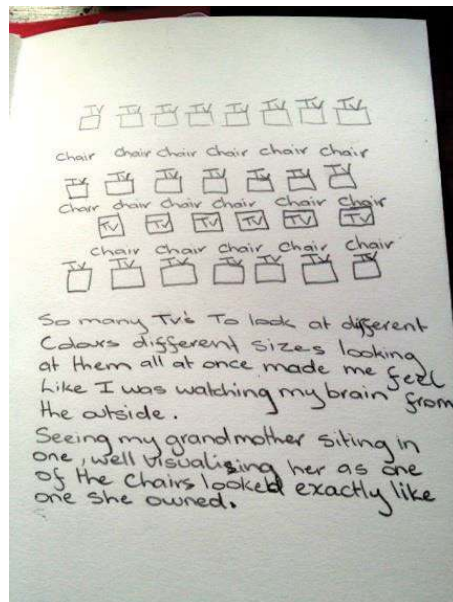 TV TV TV TV TV TV TV TV
chair chair chair chair chair chair
TV TV TV TV TV TV TV
chair chair chair chair chair chair
TV TV TV TV TV TV
chair chair chair chair chair
TV TV TV TV TV TV TV
So many TV's To look at different
Colours different Sizes looking
at them all at once made me feel
Like I was watching my brain from
the outside.
Seeing my grandmother siting in
one, well visualising her as one
of the chairs looked exactly like
one she owned.